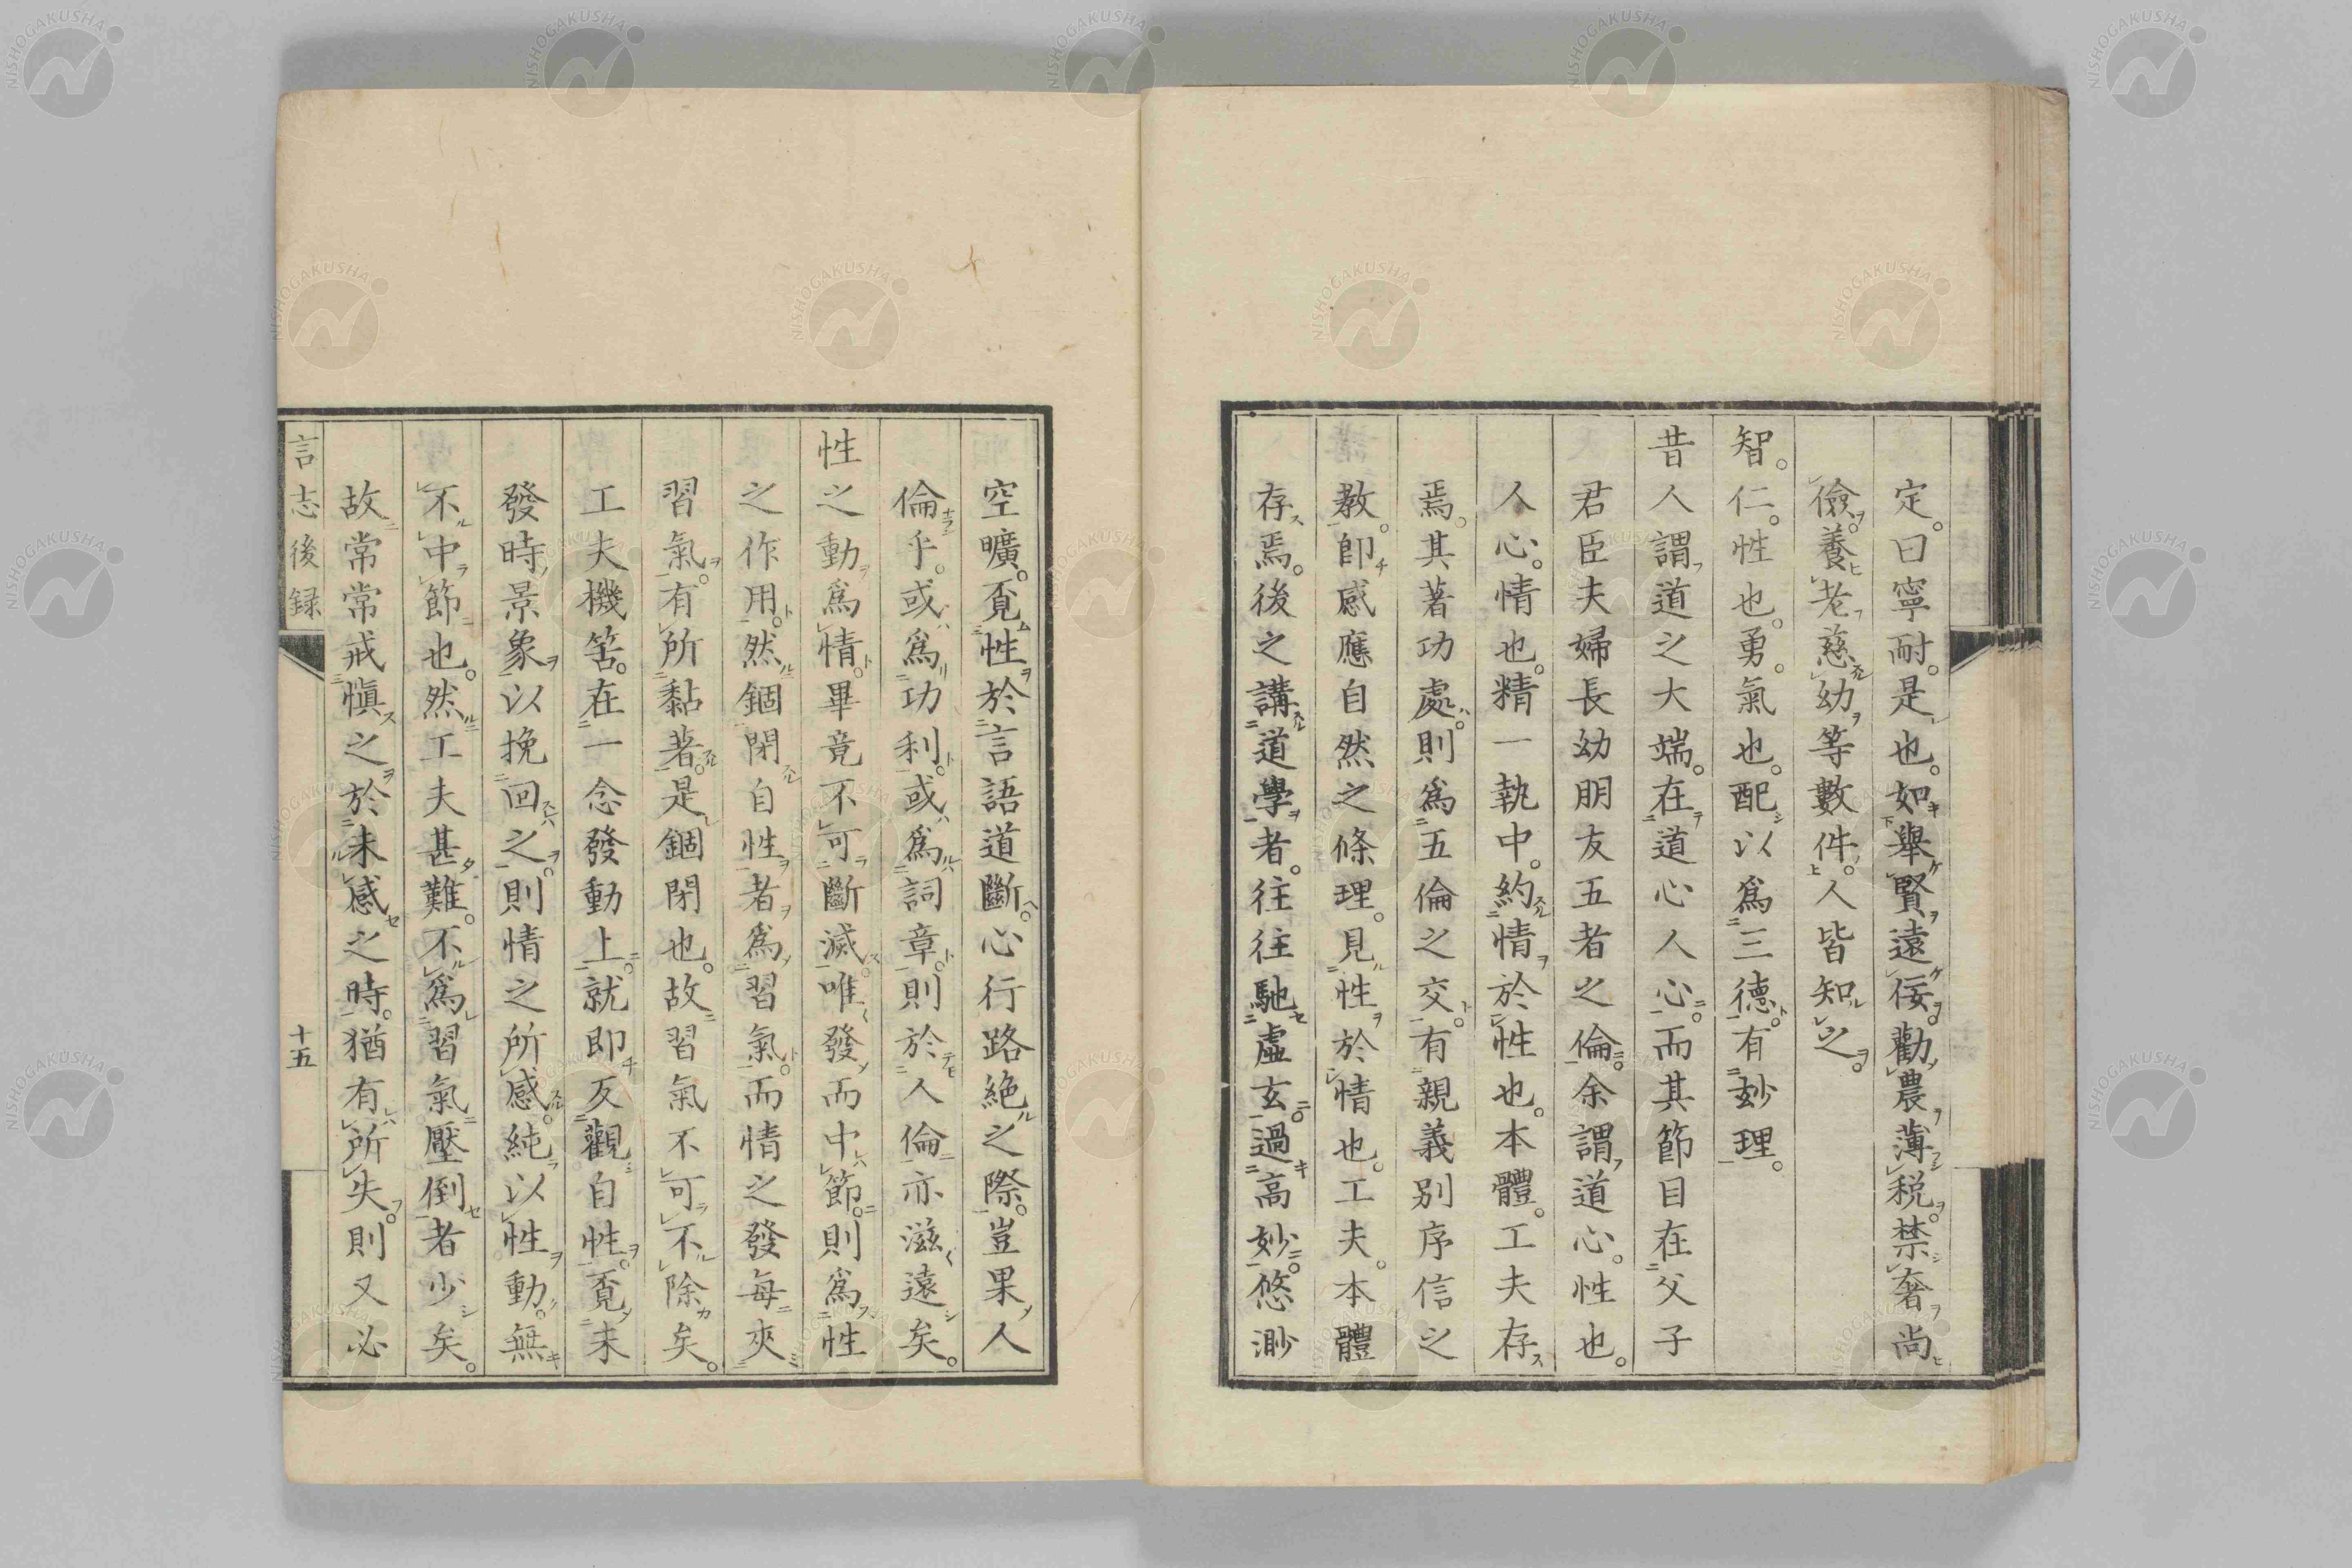 定。曰寧耐。是也。如擧賢遠佞。勸農薄税。禁奢尚
儉。養老慈幼等數件。人皆知之。
智。仁。性也。勇。氣也。配以爲三德。有妙理。
昔人謂道之大端。在道心人心。而其節目在父子
君臣夫婦長幼朋友五者之倫。余謂道心。性也。
人心。情也。精一執中。約情於性也。本體。工夫存
焉。其著功處。則爲五倫之交。有親義別序信之
教。卽感應自然之條理。見性於情也。工夫。本體
存焉。後之講道學者。往往馳虛玄。過高妙。悠渺
空曠。覔性於言語道斷。心行路絶之際。豈果人
倫乎。或爲功利。或爲詞章。則於人倫亦滋遠矣。
性之動爲情。畢竟不可斷滅。唯發而中節。則爲性
之作用。然錮閉自性者爲習氣。而情之發每夾
習氣。有所黏著。是錮閉也。故習氣不可不除矣。
工夫機筈。在一念發動上。就卽反觀自性。覔未
發時景象。以挽回之。則情之所感。純以性動。無
不中節也。然工夫甚難。不爲習氣壓倒者少矣。
故常常戒愼之於未感之時。猶有所失。則又必
言志後録
十五
NISHOGAKUSHA